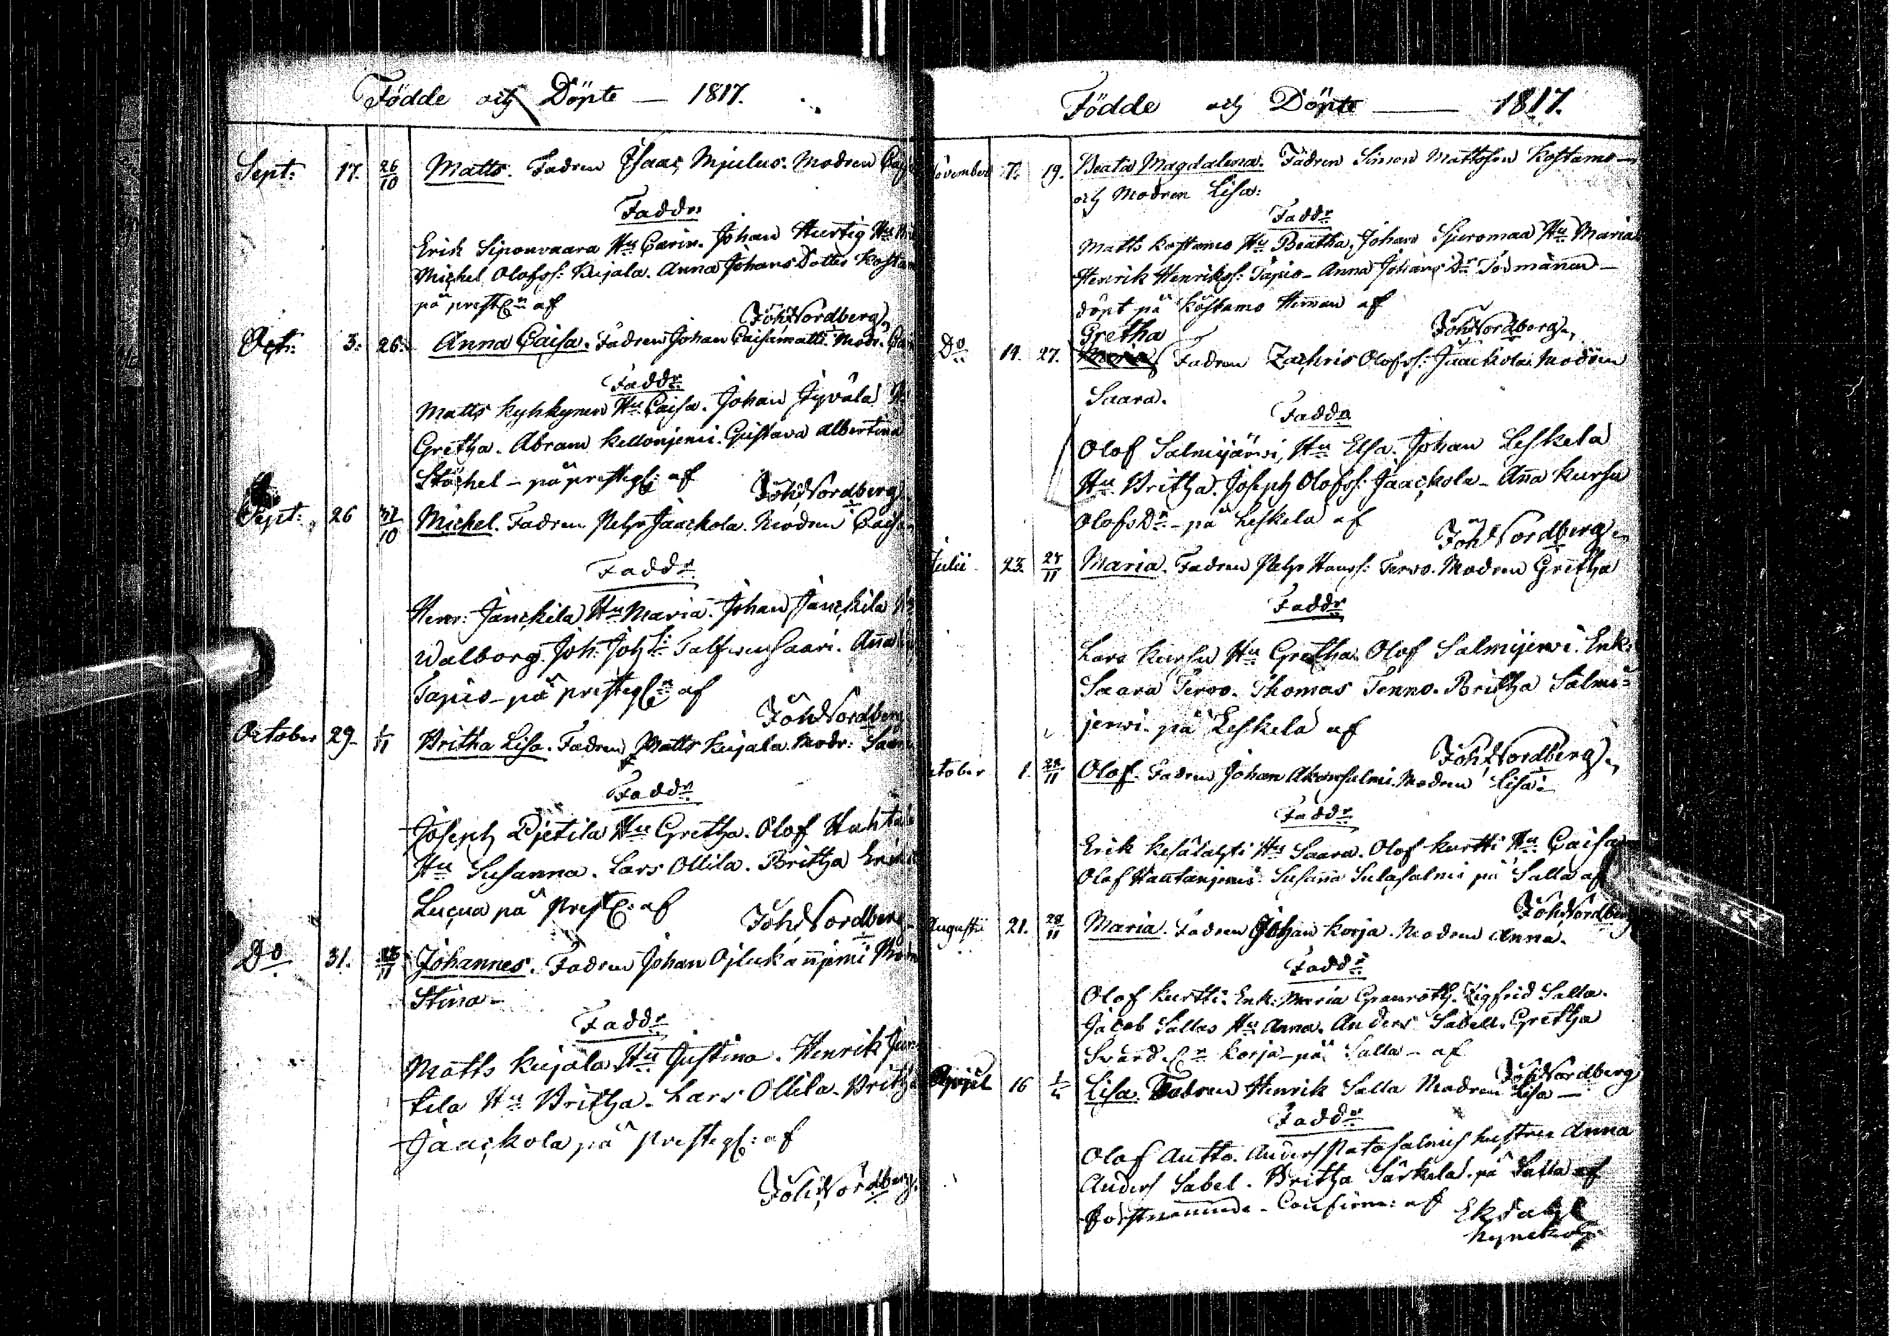 Födde och Döpte — 1817.
Sept: 17. 26/10 Matts. Fadren Isaac Mjulus. Modren
Faddr
Erik Siponvaara Hu Carin. Johan Hurtig Hu
Michel Olofss: Kujala. Anna Johans Dotter
på prestg:n af
Joh Nordberg
Oct: 3. 26. Anna Caisa. Fadren Johan Caisamatti Modr:
Faddr
Matts Kyhkynen Hu Caisa. Johan Jyvälä
Gretha. Abram Kellonjemi. Gustava Albertina
Ståhel – på prestg: af
Joh Nordberg
Sept: 26 31/10 Michel. Fadren Pehr Jaackola. Modren Caisa
Faddr
Henr: Janckila Hu Maria. Johan Janckila
Walborg. Joh: Joh S: Talfvensaari. Anna
Tapio – på prestg:n af
Joh Nordberg
October 29 1/11 Britha Lisa. Fadren Matts Kujala. Modr:
Faddr
Joseph Pietila Hu Gretha. Olof
Hu Susanna. Lars Ollila. Britha
Lucua på Prestg: af
Joh Nordberg
Do 31. Johannes. Fadren Johan
Stina –
Faddr
Matts Kujala Hu Justina. Henrik
kila Hu Britha. Lars Ollila. Britha
Jaackola på prestg: af
Joh Nordberg
Födde och Döpte — 1817.
November 7. 19. Beata Magdalena. Fadren Simon Mattsson Kostamo –
och Modren Lisa:
Faddr
Matts Kostamo Hu Beatha. Johan Sjuromaa Hu Maria
Henrik Henrikss: Tapio – Anna Johans Dr Tormänen –
döpt på Kostamo Heman af
Joh Nordberg
Gretha
Do 14. 27. Fadren Zachris Olofss: Jaackola. Modren
Saara.
Faddr
Olof Salmijärvi, Hu Elsa. Johan Leskela
Hu Britha. Joseph Olofss: Jaackola – Anna Kursu
Olofs Dr – på Leskela af
Joh Nordberg
Julii 23. 27/11 Maria. Fadren Pehr Hanss: Tervo. Modren Gretha
Faddr
Lars Kursu Hu Gretha. Olof Salmijervi. Enk:
Saara Tervo. Thomas Tenno. Britha Salmi-
jervi. på Leskela af
Joh Nordberg
October 1. 28/11 Olof. Fadren Johan Akansalmi. Modren Lisa
Faddr
Erik Kesälahti Hu Saara. Olof Kurtti Hu Caisa
Olof Hautanjemi. Susanna Sulasalmi på Salla af
Joh Nordberg
Augusti 21. 28/11 Maria. Fadren Johan Korja. Modren Anna.
Faddr
Olof Kurtti. Enk: Maria Granroth. Zigfrid Salla.
Jacob Sallas Hu Anna. Anders Sabell. Gretha
Korja – på Salla – af
Joh Nordberg
April 16 Lisa. Fadren Henrik Salla Modren Lisa –
Faddr
Olof Autto. Anders hustru Anna
Anders Sabel. Britha Särkela. på Salla af
– Confirme: af Ekdahl